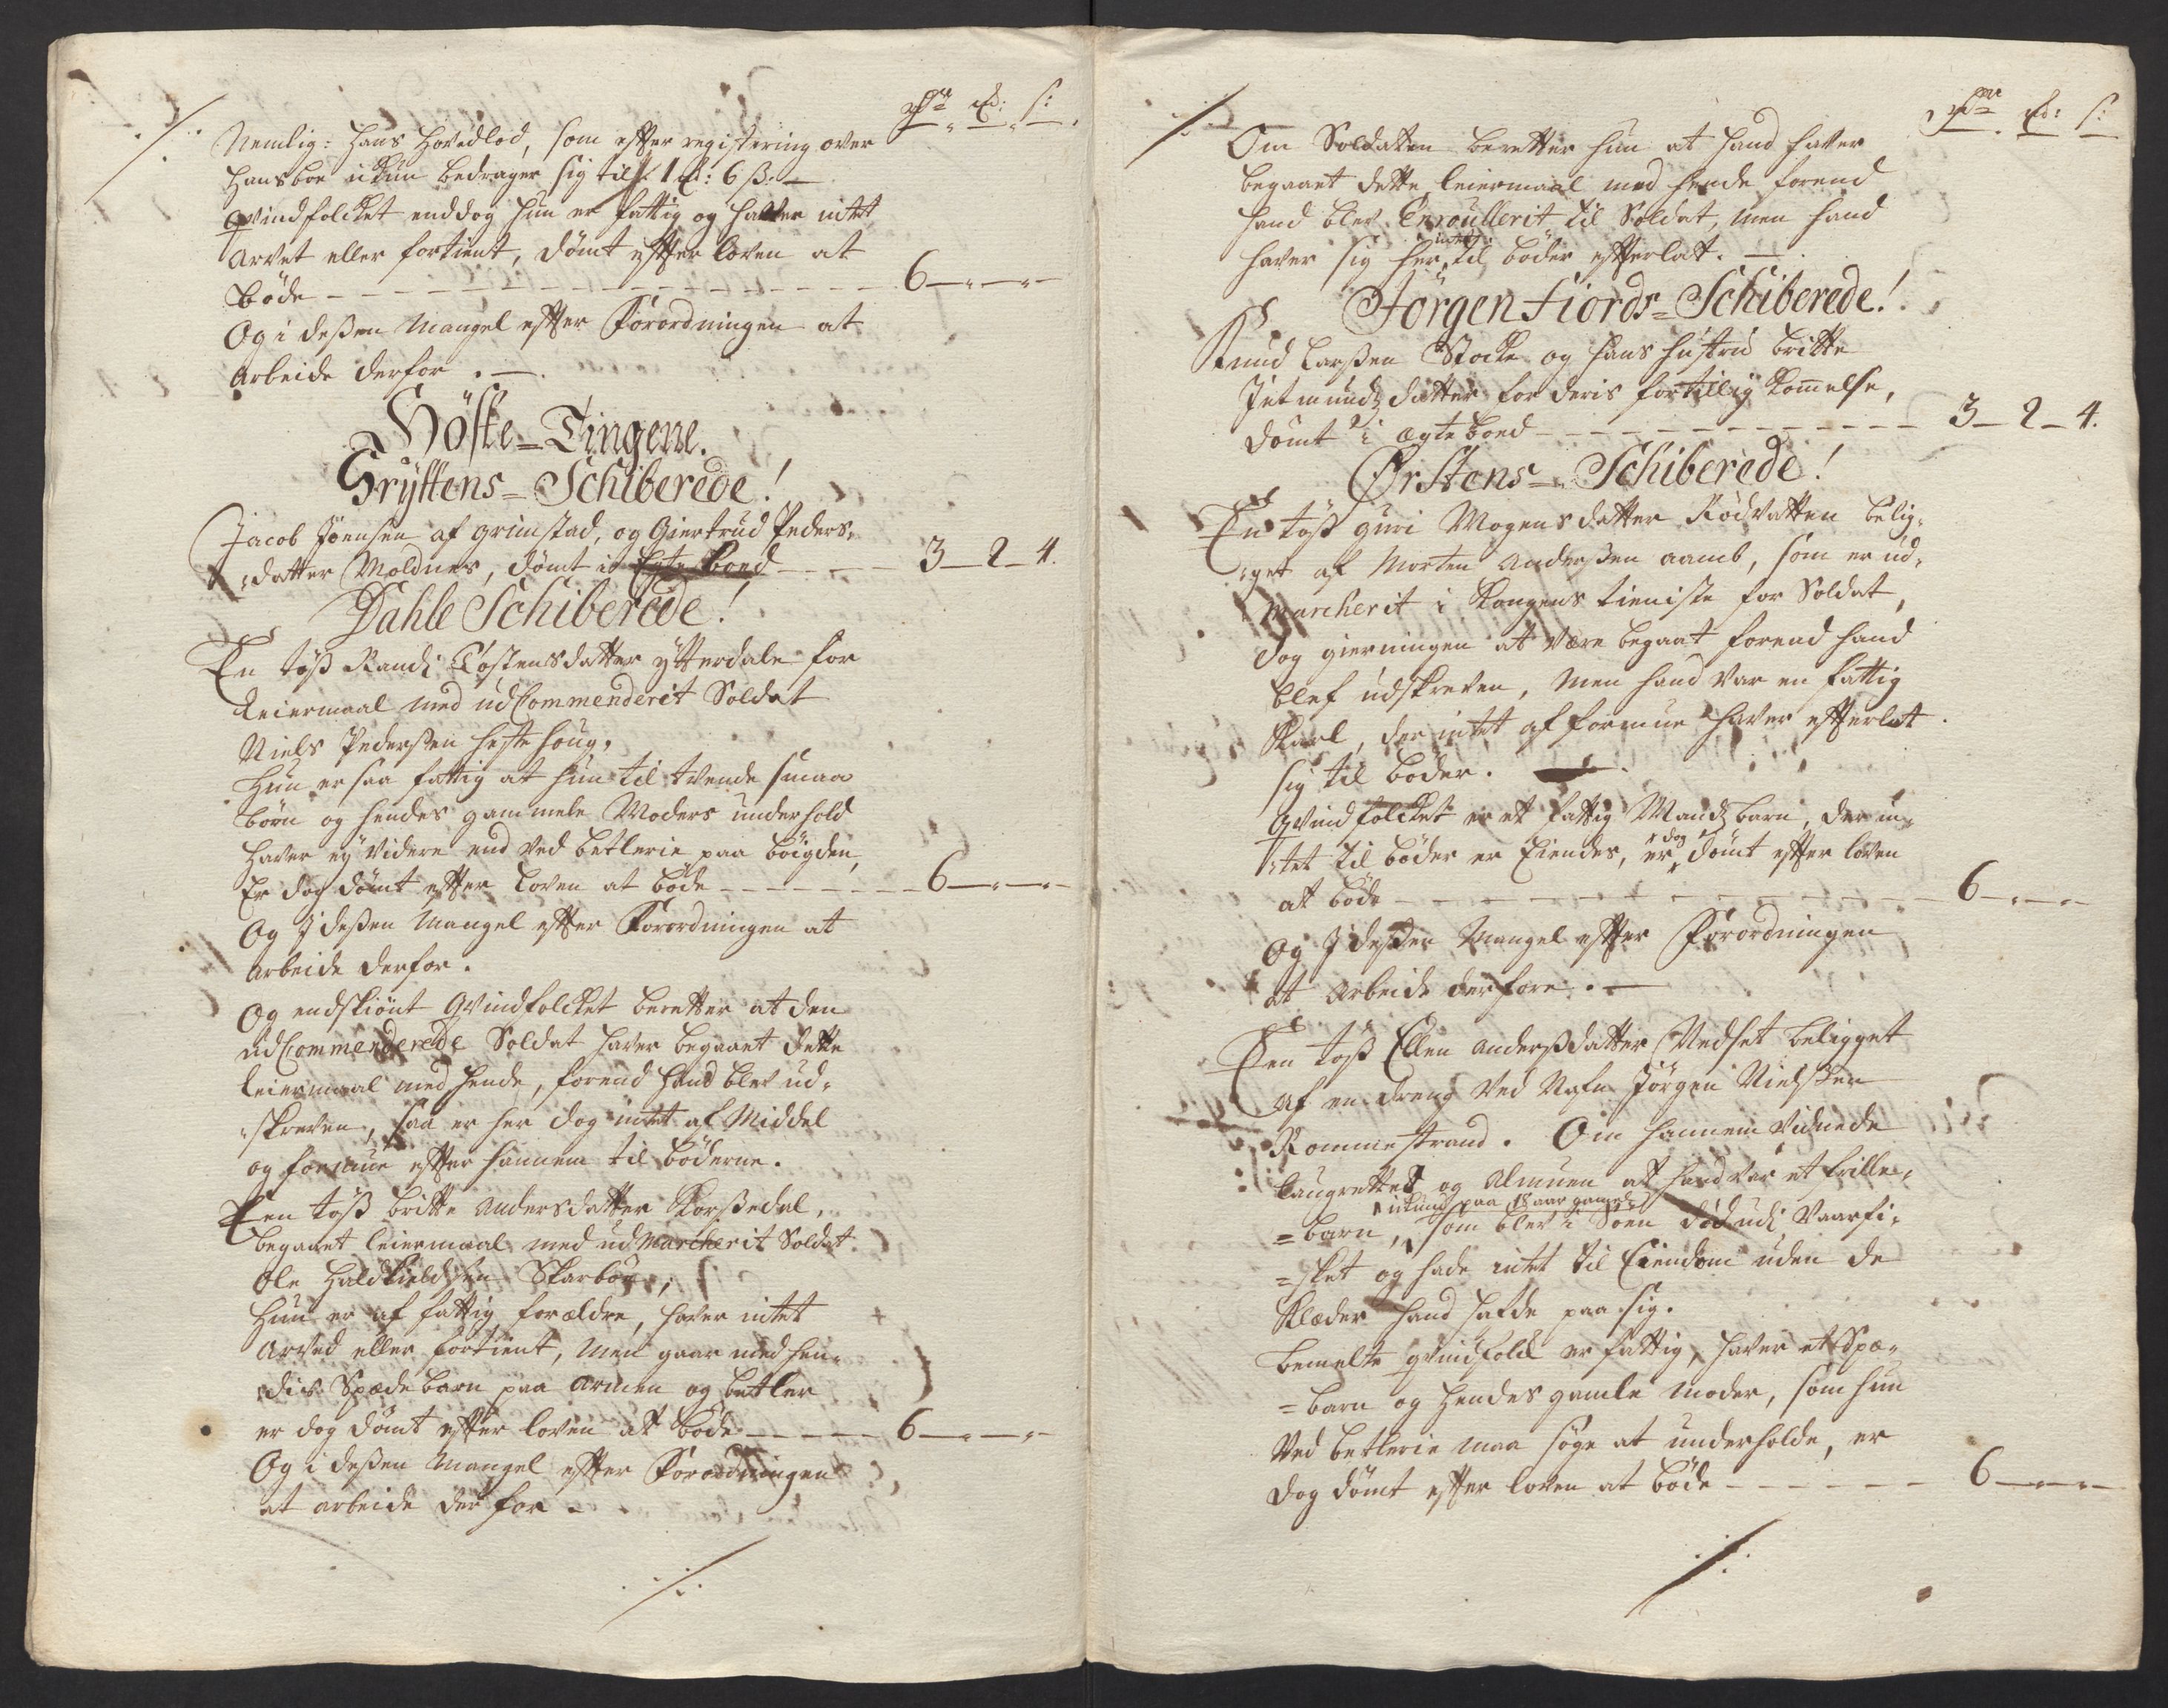 Rdr m: s:
Nemlig: hans Hovedlod, som efter registering over
hans boe ickun bedrager sig til 1 m: 6 s:
Qvindfolcket enddog hun er fattig og haver intet
arvet eller fortient, dömt efter loven at
böde - - - 6 - " - " -
Og i deßen Mangel efter Forordningen at
arbeide derfor. -
Höste-Tingene.
Gryttens-Schiberede!
Jacob Joensen af grimstad, og Giertrud Peders-
datter Moldnes, dömt i Egte boed - - - 3 - 2 - 4.
Dahle Schiberede!
En töß Randi Tostensdatter ytterdale for
Leiermaal med udCommenderet Soldat
Niels Pederßen Heste houg,
Hun er saa fattig at hun til tvende smaa
börn og hendes gammele Moders underhold
haver ey videre end ved betlerie paa böigden,
Er dog dömt efter Loven at böde - - - 6 - " - " -
Og I deßen Mangel efter Forordningen at
arbeide derfor.
Og endskiönt Qvindfolcket beretter at den
udCommenderede Soldat haver begaaet dette
leiermaal med hende, forend hand blev ud-
skreven, saa er her dog intet af Middel
og formue efter hannem til böderne.
Een töß britte Andersdatter Korßedal,
begaaet leiermaal med udmarcherit Soldat
Ole Haldkieldßen Skarböe,
Hun er af fattig forældre, haver intet
arved eller fortient, Men gaar med hen-
dis Spæde barn paa armen og betler
er dog dömt efter loven at böde - - - 6 - " - " -
Og i deßen Mangel efter Forordningen
at arbeide der for -
./.
Rdr m: s:
Om Soldaten beretter hun at hand haver
begaaet dette leiermaal med hende forend
hand blev Enroullerit til Soldat, men hand
haver sig her intet til böder efterlat. -
Jörgen Fiords-Schiberede!
Knud Larßen Stocke og hans hustru britte
Jetmundsdatter for deris fortillig komelse,
dömt i ægte boed - - - 3 - 2 - 4.
Ørstens-Schiberede!
En töß guri Mogensdatter Rödvatten belig-
get af Morten Anderßen aamb, som er ud-
marcherit i Kongens tieniste for Soldat,
dog gierningen at være begaat forend hand
blef udskreven, Men hand var en fattig
Karl, der intet af formue haver efterlatt
sig til böder.
Qvindfolcket er et fattig Mands barn, der in-
tet til böder er Eiendes, er dog dömt efter loven
at böde - - - 6 - " - " -
Og I deßen Mangel efter Forordningen
at arbeide derfore. -
Een töß Ellen Andersdatter Vedset beligget
af en dreng ved Nafn Jörgen Nielsßen
Rommestrand. Om hannem vidnede
Laugrettet og Almuen at hand var et frille-
barn, ickun paa 18 aar gamel som blev i Söen död udi Vaarfi-
sket og hade intet til Eiendom uden de
Klæder hand hafde paa sig.
bemelte qvindfolck er fattig, haver et Spæ-
barn og hendes gamle moder, som hun
ved betlerie maa söge at underholde, er
dog dömt efter loven at böde - - - 6 - " - " -
./.